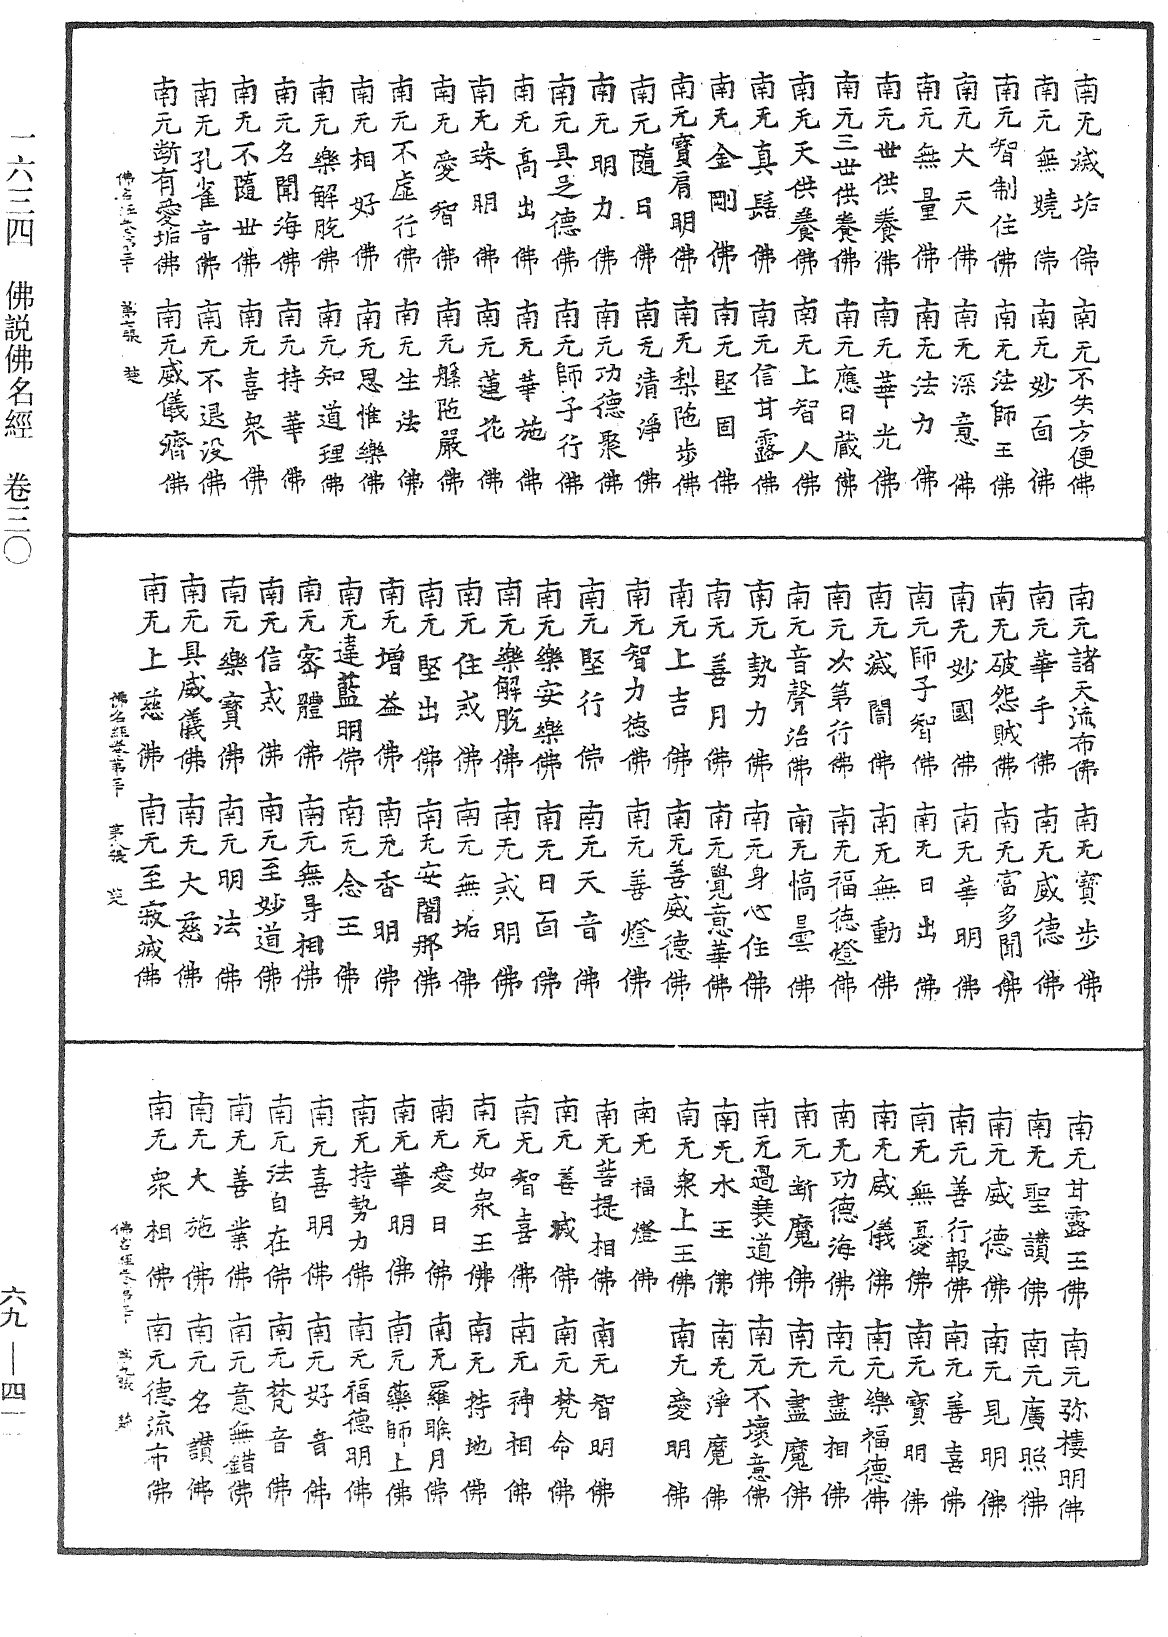 南无滅垢佛 南无不失方便佛
南无無嬈佛 南无妙面佛
南无智制住佛 南无法師王佛
南无大天佛 南无深意佛
南无無量佛 南无法力佛
南无世供養佛 南无華光佛
南无三世供養佛 南无應日藏佛
南无天供養佛 南无上智人佛
南无真髻佛 南无信甘露佛
南无金剛佛 南无堅固佛
南无寶肩明佛 南无梨陁步佛
南无隨日佛 南无清淨佛
南无明力佛 南无功德聚佛
南无具足德佛 南无師子行佛
南无高出佛 南无華施佛
南无珠明佛 南无蓮花佛
南无愛智佛 南无槃陁嚴佛
南无不虛行佛 南无生法佛
南无相好佛 南无思惟樂佛
南无樂解脫佛 南无知道理佛
南无名聞海佛 南无持華佛
南无不隨世佛 南无喜衆佛
南无孔雀音佛 南无不退没佛
南无断有愛垢佛 南无威儀濟佛
佛名經卷第三十 第七張 楚
南无諸天流布佛 南无寶步佛
南无華手佛 南无威德佛
南无破怨賊佛 南无富多聞佛
南无妙國佛 南无華明佛
南无師子智佛 南无日出佛
南无滅闇佛 南无無動佛
南无次第行佛 南无福德燈佛
南无音聲治佛 南无憍曇佛
南无勢力佛 南无身心住佛
南无善月佛 南无覺意華佛
南无上吉佛 南无善威德佛
南无智力德佛 南无善燈佛
南无堅行佛 南无天音佛
南无樂安樂佛 南无日面佛
南无樂解脫佛 南无戒明佛
南无住戒佛 南无無垢佛
南无堅出佛 南无安闍那佛
南无增益佛 南无香明佛
南无違藍明佛 南无念王佛
南无密體佛 南无無㝵相佛
南无信戒佛 南无至妙道佛
南无樂寶佛 南无明法佛
南无具威儀佛 南无大慈佛
南无上慈佛 南无至寂滅佛
佛名經卷第三十 第八張 楚
南无甘露王佛 南无弥樓明佛
南无聖讚佛 南无廣照佛
南无威德佛 南无見明佛
南无善行報佛 南无善喜佛
南无無憂佛 南无寶明佛
南无威儀佛 南无樂福德佛
南无功德海佛 南无盡相佛
南无断魔佛 南无盡魔佛
南无過衰道佛 南无不壞意佛
南无水王佛 南无淨魔佛
南无衆上王佛 南无愛明佛
南无福燈佛
南无菩提相佛 南无智明佛
南无善滅佛 南无梵命佛
南无智喜佛 南无神相佛
南无如衆王佛 南无持地佛
南无愛日佛 南无羅睺月佛
南无華明佛 南无藥師上佛
南无持勢力佛 南无福德明佛
南无喜明佛 南无好音佛
南无法自在佛 南无梵音佛
南无善業佛 南无意無錯佛
南无大施佛 南无名讚佛
南无衆相佛 南无德流布佛
佛名經卷第三十 第九張 楚
一六三四 佛説佛名經 卷三〇
六九—四一